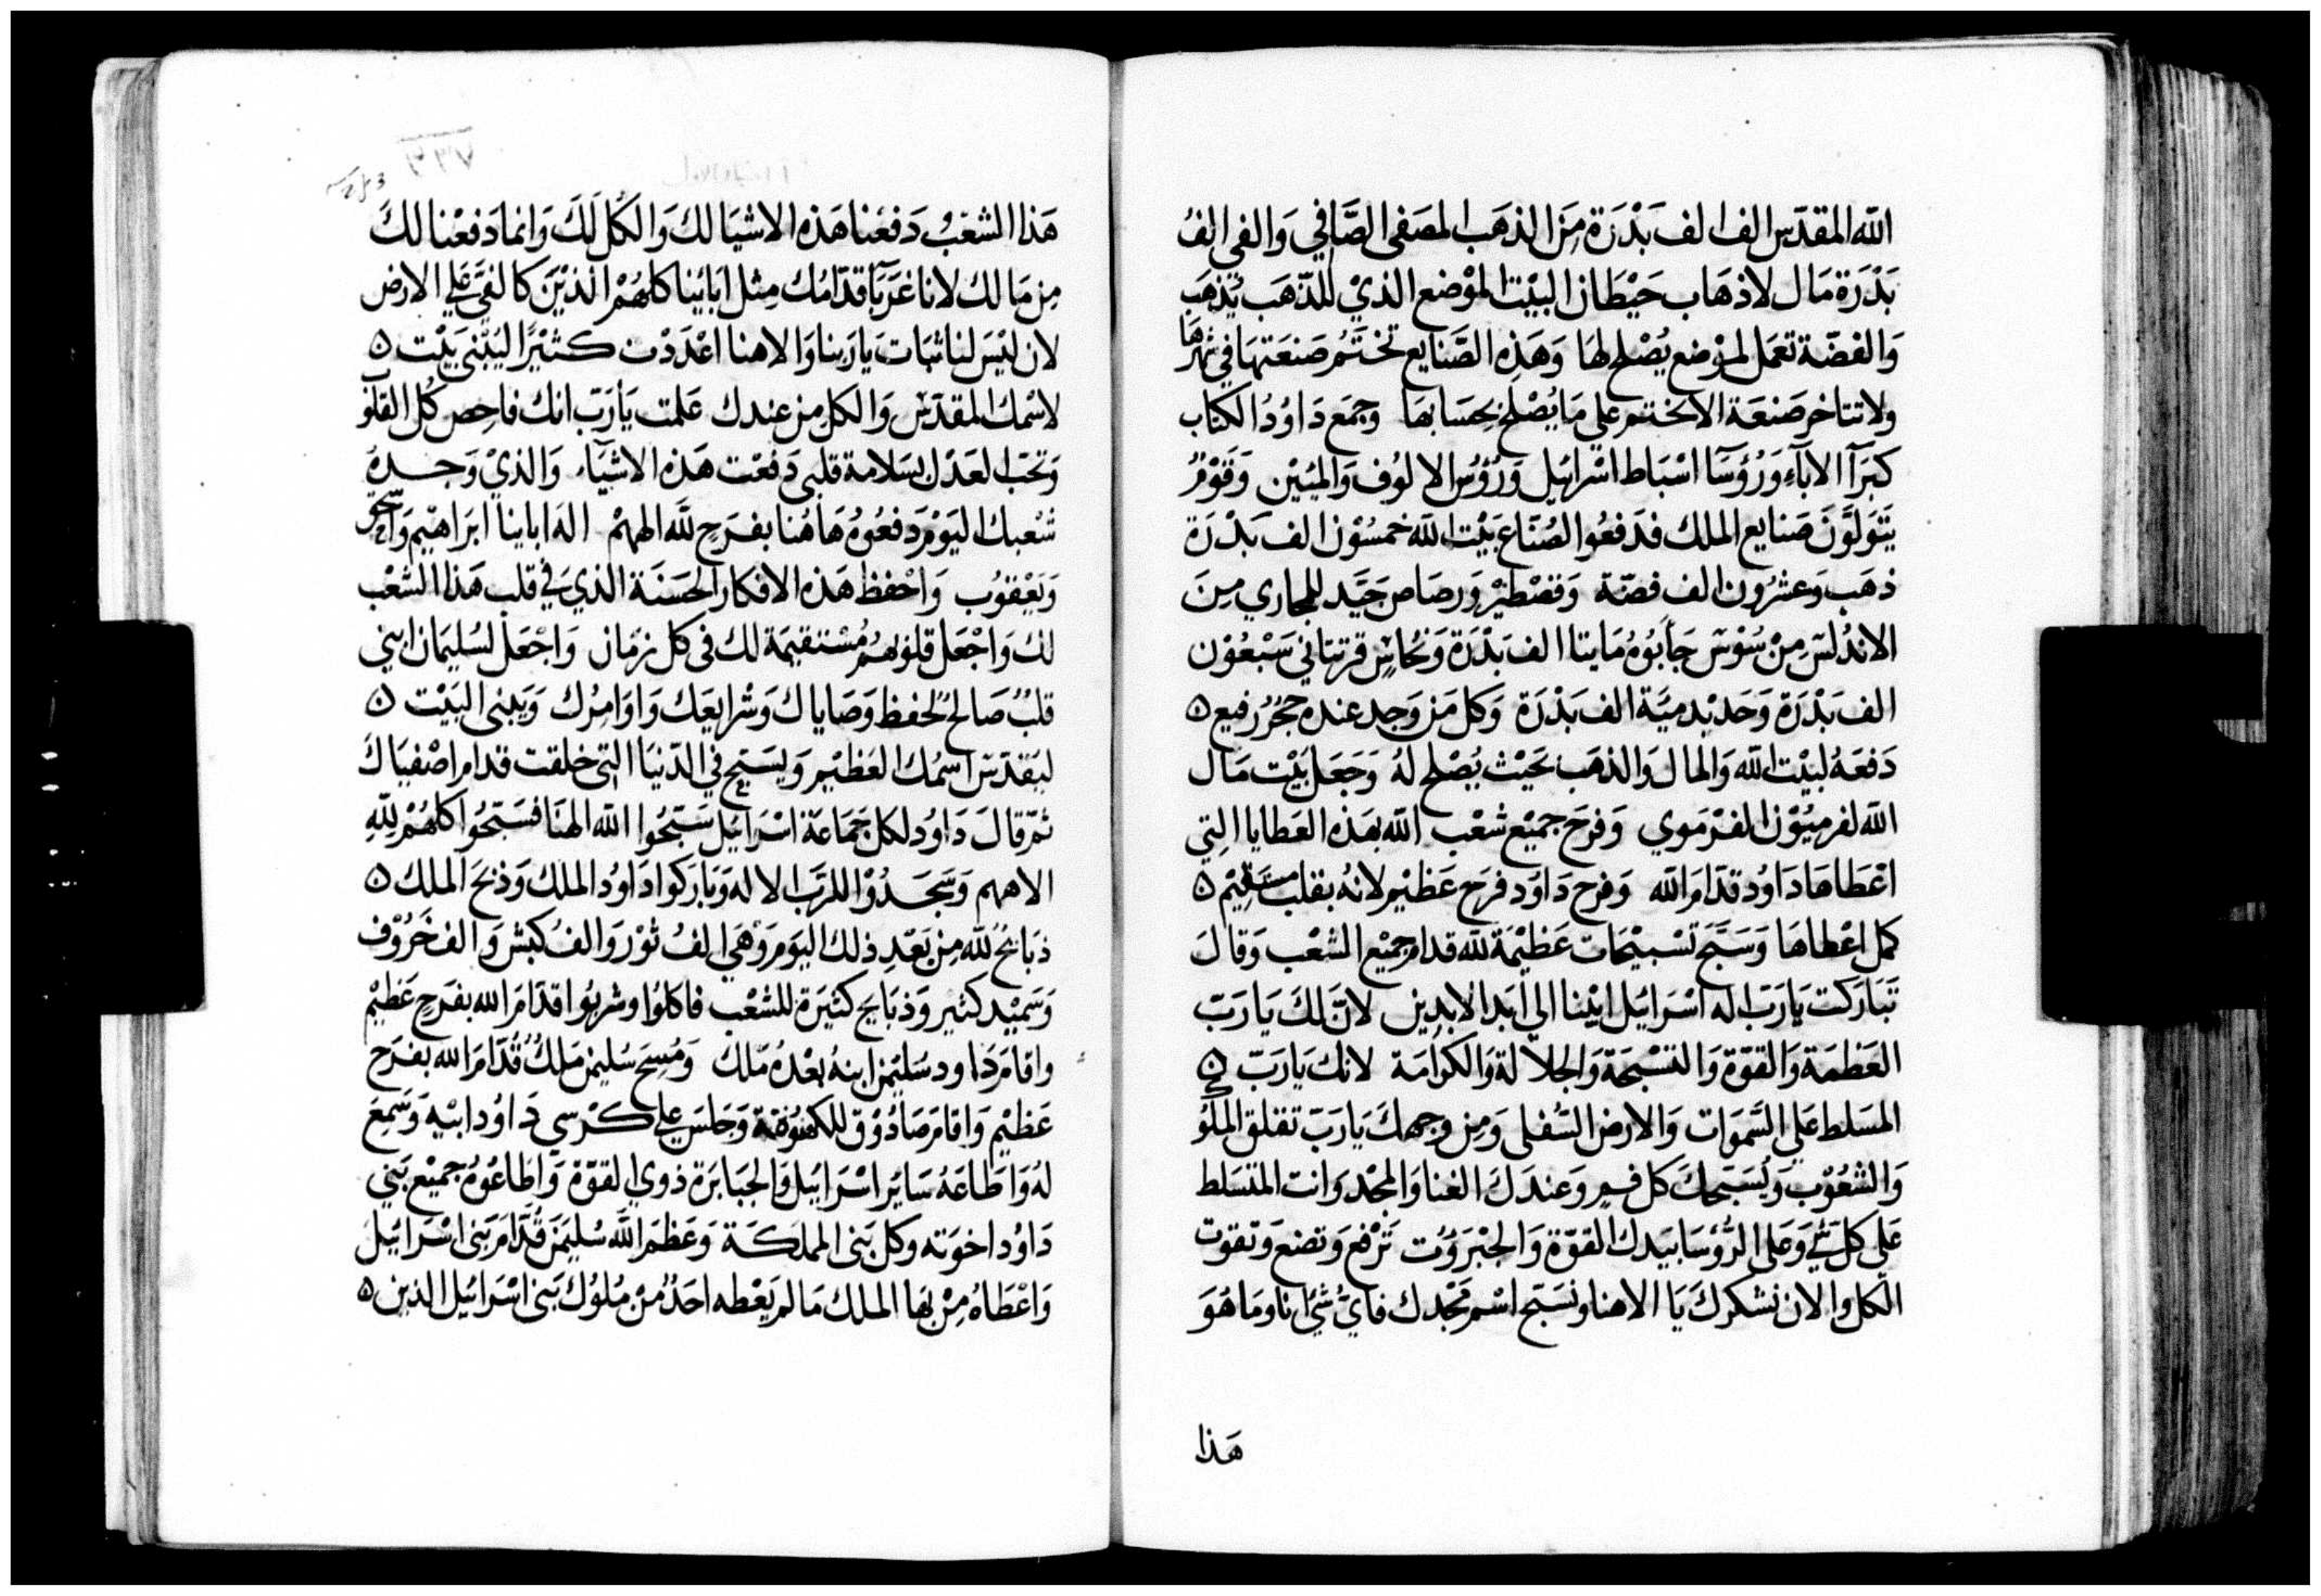 الله المقدّس الف الف بَدْرَة مِنَ الذهَب المصَفى الصَّافي وَالفى الفُ
بَدْرَة مَال لاذهَاب حَيْطَان البيْت الموْضع الذيْ للذّهَب يُذهَب
وَالفضّة تعمَل لموْضع يُصْلح لهَا وَهَذِه الصَّنايع تختَتمُ صَنعَتهَا في شهرهَا
ولا تتاخر صَنعَة الا تختم علي مَا يُصْلح بحسَابهَا وجمَع دَاوُدُ الكتاب
كبَرآ الابآءِ وَرُؤسَآ اسْبَاط اسْرَائيل وَرُؤُس الالوُف وَالميُيْن وَقَوْمُ
يَتَولَّوَن صَنايع الملك فدَفعُوا لصُنّاع بَيْت الله خمسُوْن الف بَدْرَة
ذهَب وَعشرُون الف فضّة وَقصْطيْر وَرصَاص جَيّد للمجاري مِنَ
الاندُلسّ مِنْ سُوْسَ جَابُوُه مَايتا الف بَدْرَة وَنحُاسٍ قرنتاني سَبْعُوْن
الف بَدْرَة وَحَديْد ميَّة الف بَدْرَة وَكل مَن وَجد عنده حجَرُ رفيع ٥
دَفعَهُ لبيْت الله وَالمال وَالذهَب بحَيْث يُصْلح لهُ وَجَعَل بَيْت مَال
الله لفرميُوْن الفرْمَوي وَفرحَ جميْع شعْب الله بهَذه العَطايا التِي
اعْطَاهَا دَاوُد قدّامَ الله وَفرح دَاوُد فرَح عَظيْم لانهُ بقلب مستقيْم ٥
كمل اعْطاهَا وَسَبَّحَ تسْبيْحَات عَظيْمَة لله قدام جميْع الشعْب وَقالَ
تَبَارَكت يَارَبّ اله اسْرَائيَل ابيْنا الي اَبدَ الابدِين لانّ لكَ يَا رَبّ
العَظمَة وَالقوّة وَالتسْبحَة وَالجلالة وَالكرَامَة لانك يَارَبّ ٥
المسَلط عَلي السَّموَات وَالارض السُّفلى وَمِن وجهكَ يَارَبّ تقلق الملُوك
وَالشعُوْب وَيُسَبّحكَ كل فمٍ وعندَكَ الغنا وَالمجْد وَانت المتسَلط
عَلى كل شَيْ وَعَلى الرُّؤسَا بيَدك القوّة وَالجبْرَوُت تَرْفع وَتضع وَتقوت
الكل والان نشكركَ يَا الاهنا ونسَبّح اسْم مَجْدك فايُّ شيْ انا وما هُوَ
هَذا
هَذا الشعْبُ دَفعَنا هَذه الاشيَا لك وَالكُلّ لَكَ وَانما دَفعْنا لكَ
مِن مَا لك لانا غَرَبَآ قدّامُك مِثل ابَائيْنا كلهُمْ الذيْنَ كالفئَ عَلي الارض
لان ليْسَ لنا ثبَات يَارَبنا وَالاهنا اعْدَدْت كثيْرًا ليُبْنى بَيْت ٥
لاسْمك المقدّس وَالكل مِن عندك عَلمت يَارَبّ انك فاحِص كل القلوب
وَتحبّ العَدْل بسَلامة قلبى دَفعْت هَذه الاشيَاء وَالذيْ وَجَدهُ
شعْبك اليَوْم دَفعُوهُ هَاهُنا بفرَحٍ للَّه الههمْ الهَ ابَاينا ابرَاهيْم وَاسحق
وَيَعْقوُب وَاحْفظ هَذه الافكار الحَسَنة الذي في قلب هَذا الشعْب
لك وَاجْعَل قلوُبهُم مُسْتقيمَة لك في كل زمَان وَاجْعَل لسُليمَان ابني
قلبٌ صَالحٌ لحفظ وَصَاياك وَشرايعَك وَاوَامِرُك وَيَبني البَيْت ٥
ليَقدّس اسمُك العَظيْم وَيسَبّح في الدّنيَا التي خلقت قدام اصْفيَاكَ
ثمّ قالَ دَاوُد لكل جَمَاعَة اسْرَائيَل سَبّحُوا الله الهنَا فسَبّحُوا كلهُمْ للّهِ
الاههم وَسَجَدُوْا للرّبّ الاله وَبَارَكوا دَاوُد الملك وَذبحَ الملك ٥
ذبَائحُ لله مِن بَعْدِ ذلك اليَوم وَهي الفُ ثوْر وَالفُ كبش وَالف خَرُوْف
وَسَميْد كثير وَذبَايح كثيَرة للشعْب فاكلوُا وشربُوا قدَامَ الله بفرَحٍ عَظيْم
واقامَ دَاود سُليْمن ابنهُ بعْدهُ مَلك وَمُسحَ سُليمن مَلكُ قُدَّامَ الله بفرَح
عَظيْم وَاقامَ صَادُوْق للكهنُوتة وَجَلسَ علي كرْسي دَاوُد ابيْه وَسَمعَ
لهُ وَاطاعَهُ سَايَر اسْرَايَيل وَالجبَابرَة ذوي القوّة وَاطَاعُوهُ جميْع بَني
دَاوُد اخوَته وكل بَني المملكَة وَعَظمَ اللَّه سُليمَن قُدَّامَ بَني اسْرَائيَل
وَاعْطَاهُ مِنْ بهَا الملك مَا لم يَعْطه احَدٌ مُنْ مُلوُك بَني اسْرَائيل الذين ٥